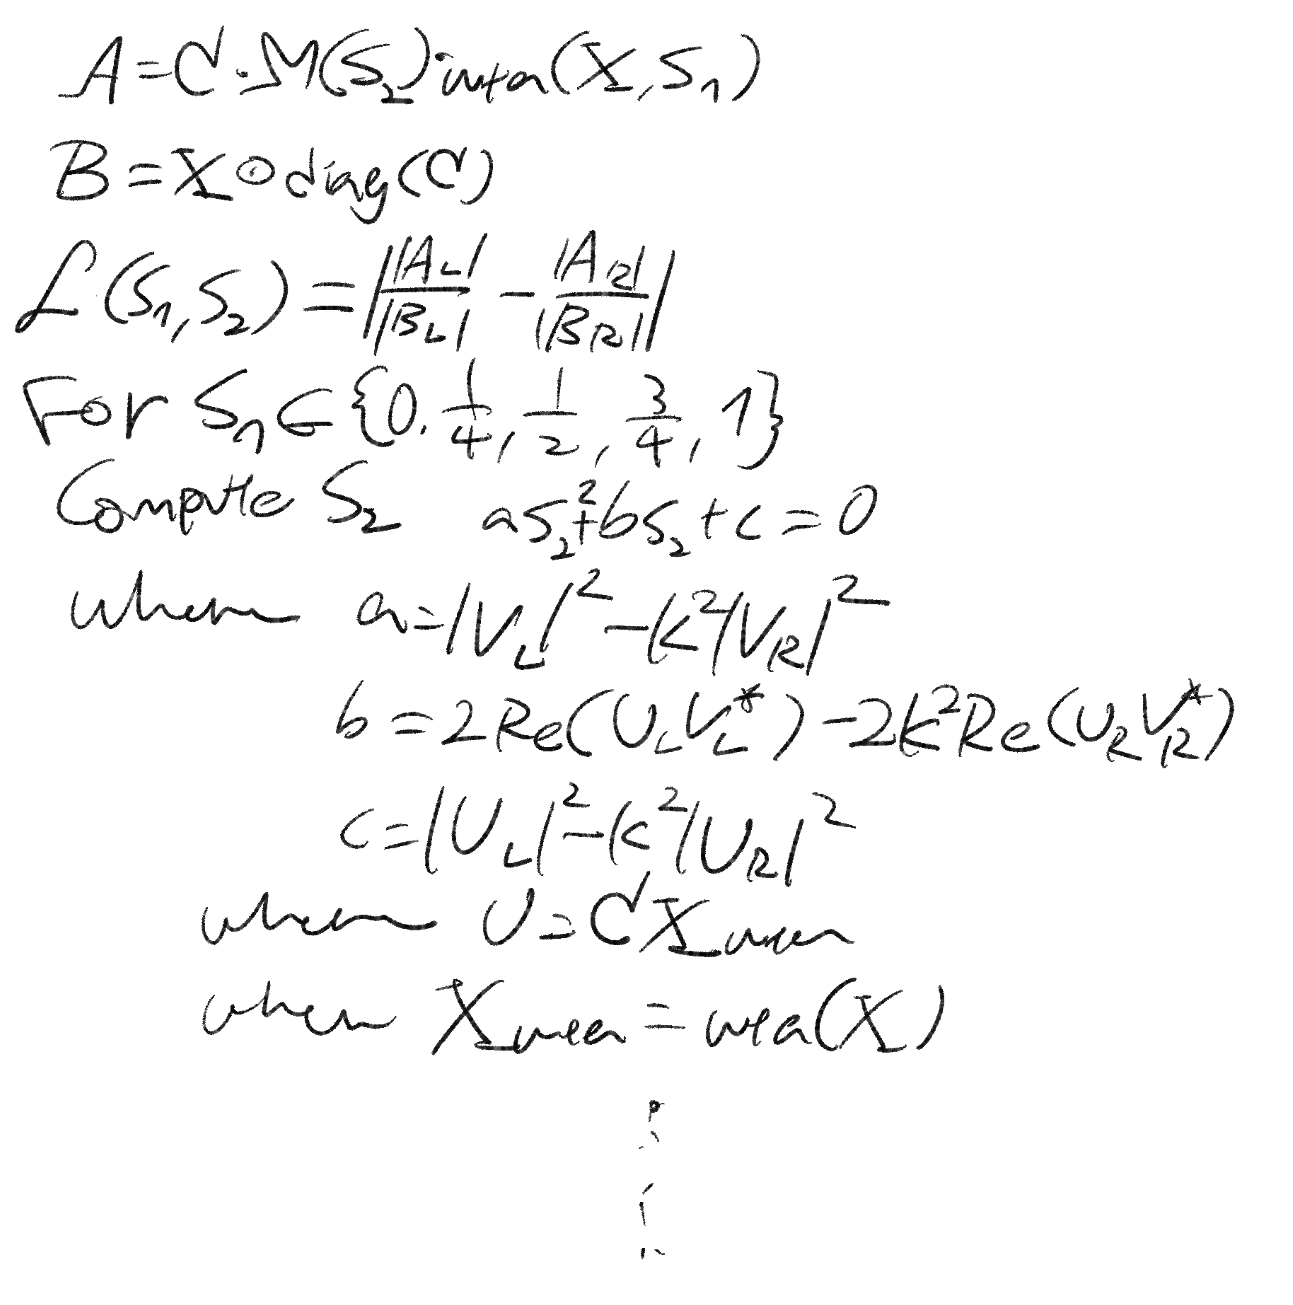 A = C · M(S₂) · inten(X, S₁)
B = X ⊙ diag(C)
ℒ(S₁, S₂) = | |A_L| / |B_L| − |A_R| / |B_R| |
For S₁ ∈ {0. 1/4, 1/2, 3/4, 1}
Compute S₂ aS₂² + bS₂ + c = 0
where a = |V_L|² − k²|V_R|²
b = 2Re(U_L V_L*) − 2k²Re(U_R V_R*)
c = |U_L|² − k²|U_R|²
where U = C X_mean
where X_mean = mean(X)